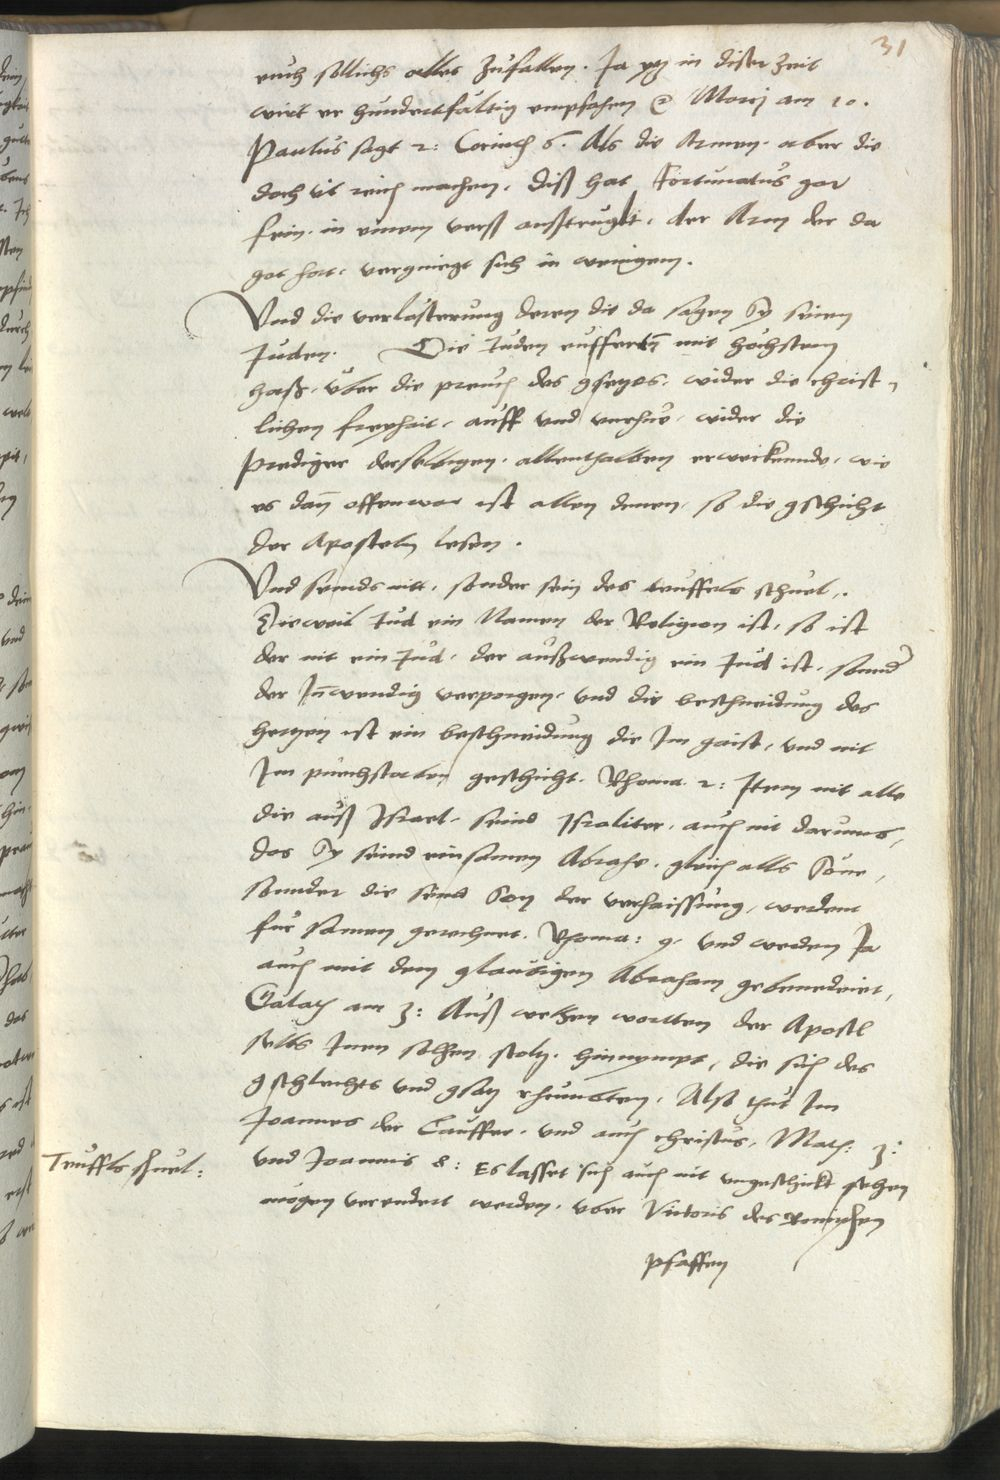 31
euch sollichs alles zufallen. Ja yez in diser zeit
wirt er hundertfaltig empfahen Marci am 10.
Paulus sagt 2: Corinth 6. Als die Armen. aber die
doch vil reich machen. diß hat Fortunatus gar
fein. in einem verß außtrugkt. der Arm der da
got hort. vergnuegt sich in wenigem.
Vnd die verlästerung deren die da sagen Sy seien
Juden. Die Juden eufferten mit hochstem
haß. über die preuch des gsetzes. wider die christ-
lichen freyhait. auff vnd wider die
Prediger derselbigen. allenthalben erweckende. wie
es dan offenwar ist allen denen. so die gschicht
der Aposteln lesen.
Vnd seinds nit. sonder sein des teuffels schuel.
Dieweil Jud ein Namen der Religion ist. so ist
der nit ein Jud. der außwendig ein Jud ist. sonnder
der Inwendig verporgen. vnd die beschneidung des
hertzen ist ein beschneidung die Im gaist. vnd nit
Im puechstaben geschicht. Rhoma 2: Item nit alle
die auß Israel. seind Israliter. auch nit darumb,
das Sy seind ein samen Abrahe. gleich alls Söne,
sonnder die seind Son der verhaissung. werdent
für samen gerechnet. Rhoma: 9. vnd werden Ja
auch mit dem glaubigen Abraham gebenedeiet.
Galath am 3: Auß welhen wortten der Apostl
selbs Inen solhen stoltz. hinnympt. die sich des
gschlechts vnd gsatz rhuembten. Also thut Im
Joannes der Tauffer. vnd auch christus. Math: 3:
vnd Joannis 8: Es lasset sich auch nit vngeschickt sehen
mögen verendert werden. vber Victoris des Romischen
pfaffen
Teuffls schuel: